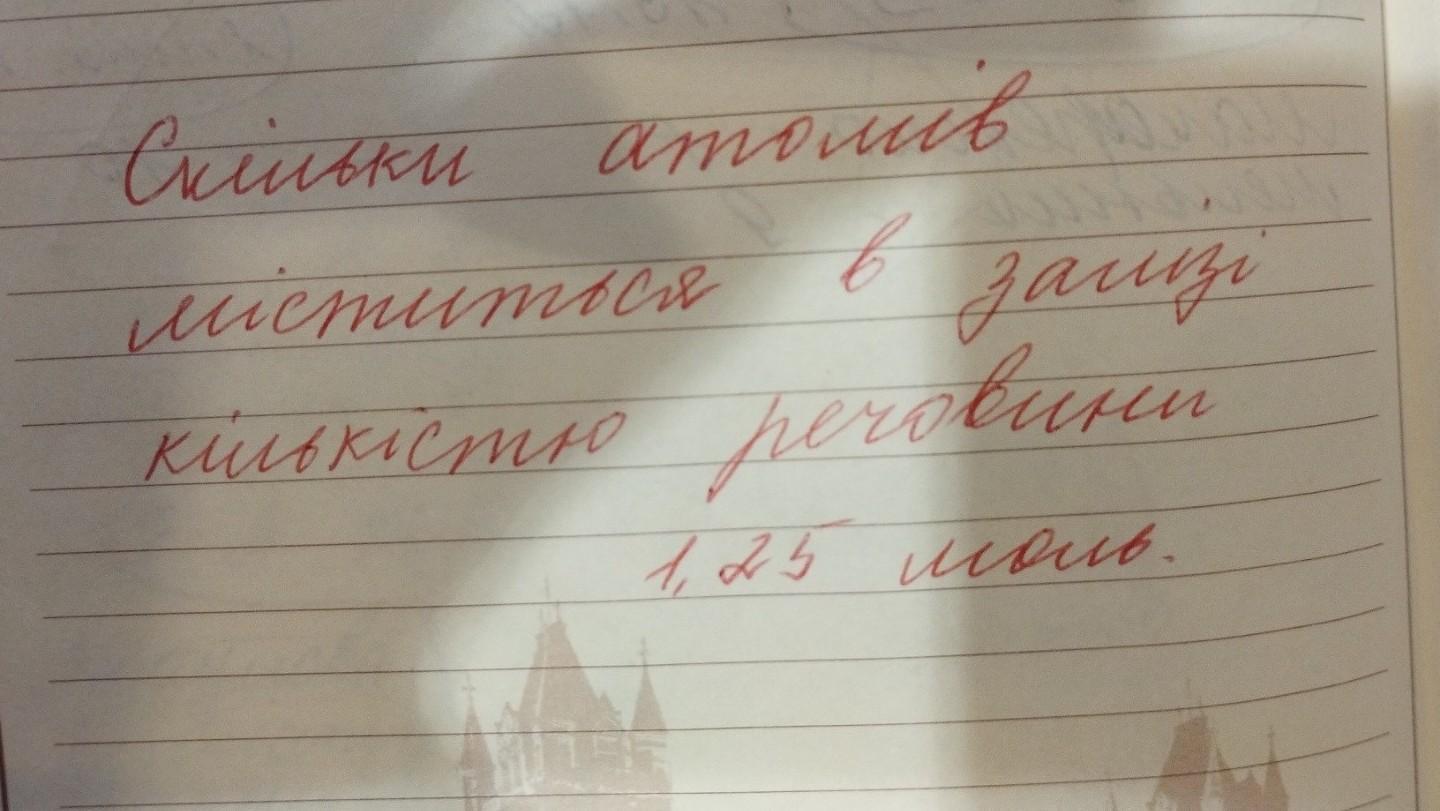 Скільки атомів
міститься в залізі
кількістю речовини
1,25 моль.